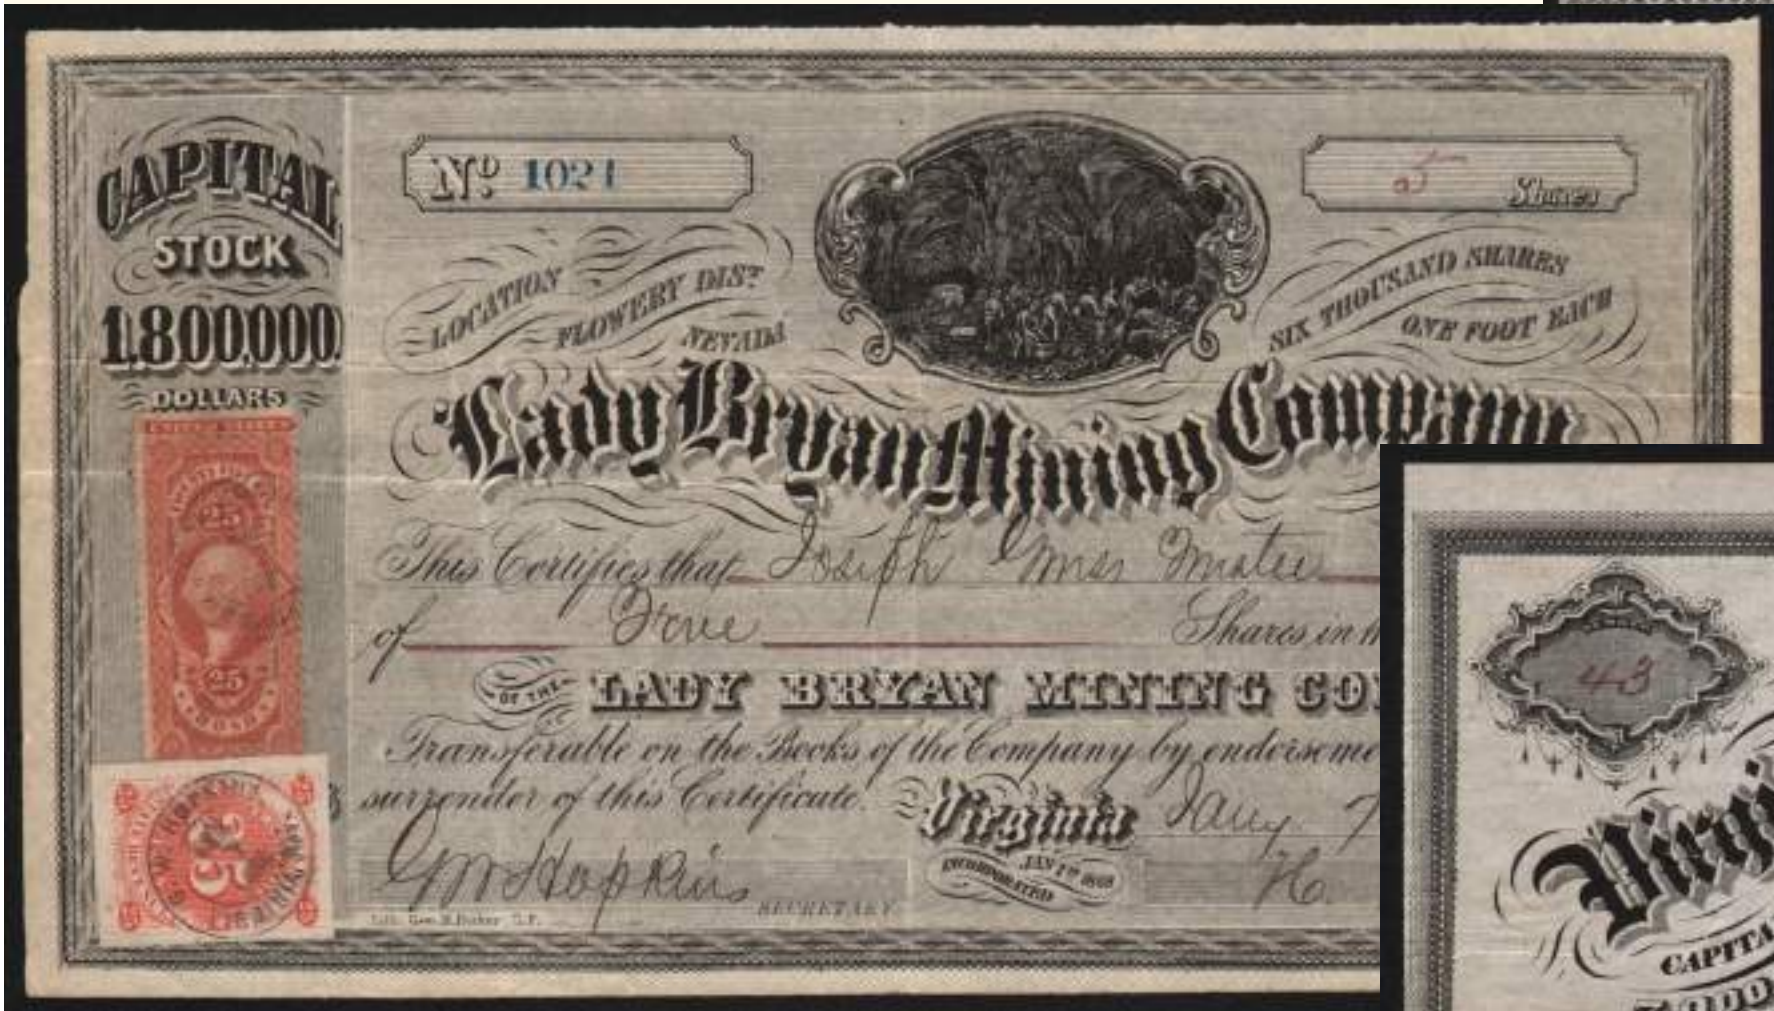 CAPITAL
STOCK
1.800.000.
DOLLARS
No 1021
5 Shares
LOCATION
FLOWERY DIST
NEVADA
SIX THOUSAND SHARES
ONE FOOT EACH
Lady Bryan Mining Company
This Certifies that Joseph Trustee
of Five Shares in
OF THE LADY BRYAN MINING CO
Transferable on the Books of the Company by endorseme
surrender of this Certificate. Virginia Jany. 7
INCORPORATED JAN
GW Hopkins SECRETARY. H.
Lith. Geo. S.F.
25
25
25
43
Virgi
CAPITA